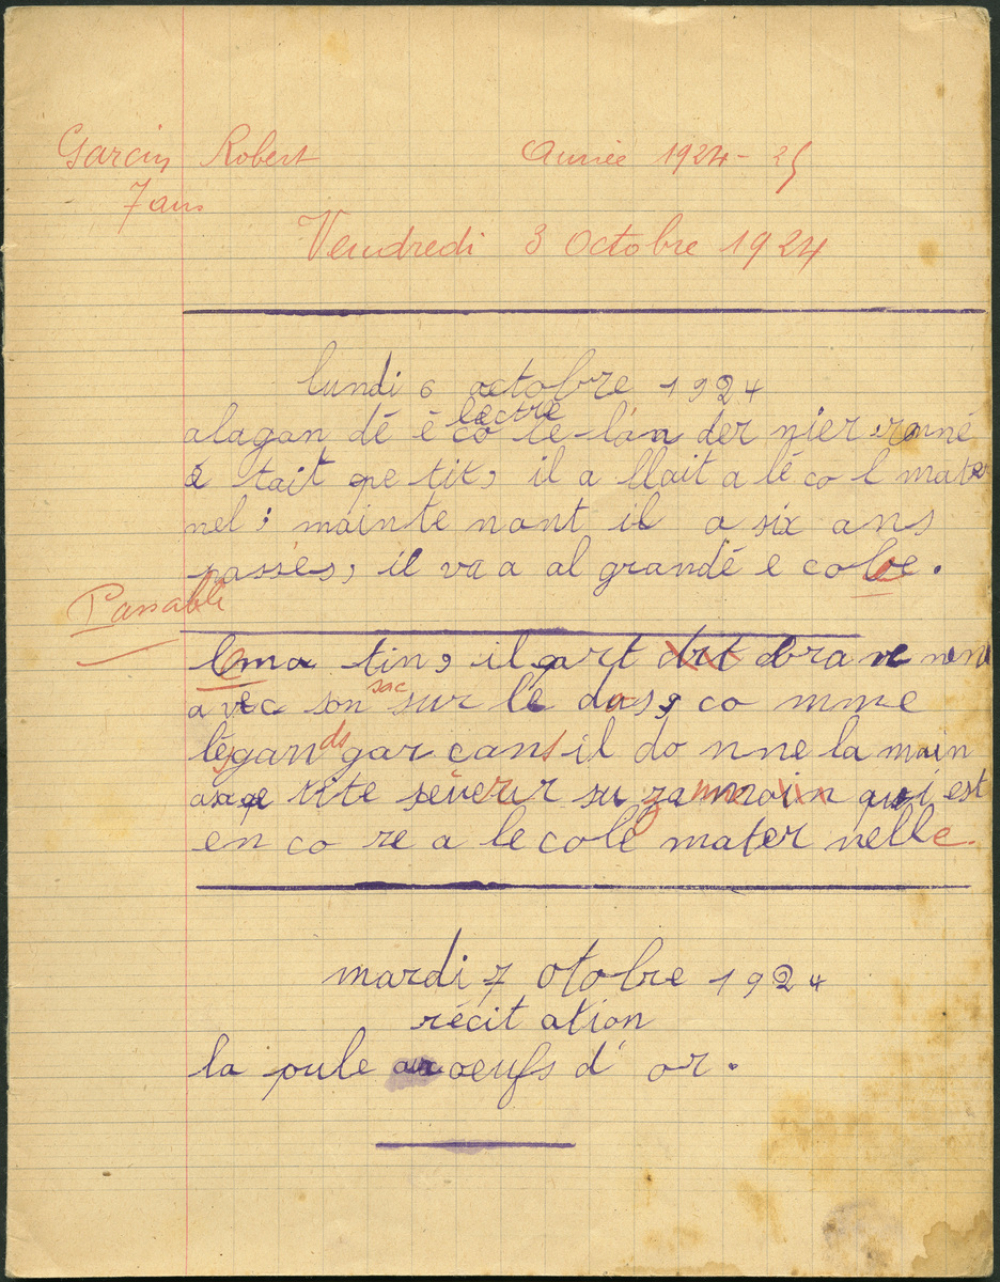 Garcin Robert Année 1924-25
7 ans
Vendredi 3 Octobre 1924
lundi 6 octobre 1924
lectre
alagan dé é co le-lan der nier rené
é tait pe tit, il a llait a lé co l mate
nel; mainte nant il a six ans
passés, il va a al grandé é cole.
Passable
lema tin, il part drt dra ve men
avec son sac sur lé dos, co mme
légands gar cans il do nne la main
sa pe tite séverur su za nne qui est
en co re a le colé mater nelle.
mardi 7 otobre 1924
récit ation
la pule aux oeufs d'or.